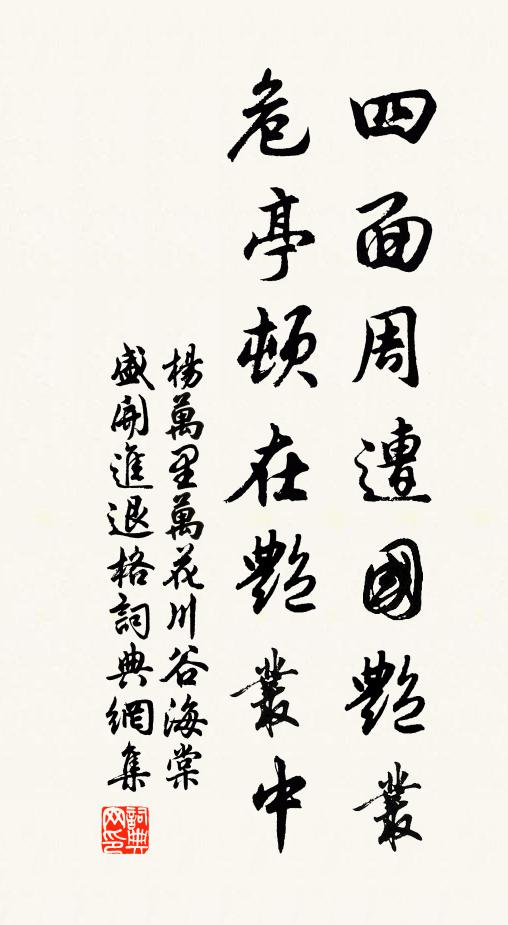 四面周遭國艷叢
危亭頓在艷叢中
楊萬里萬花川谷海棠
盛開進退格詞典網集
詞典網印